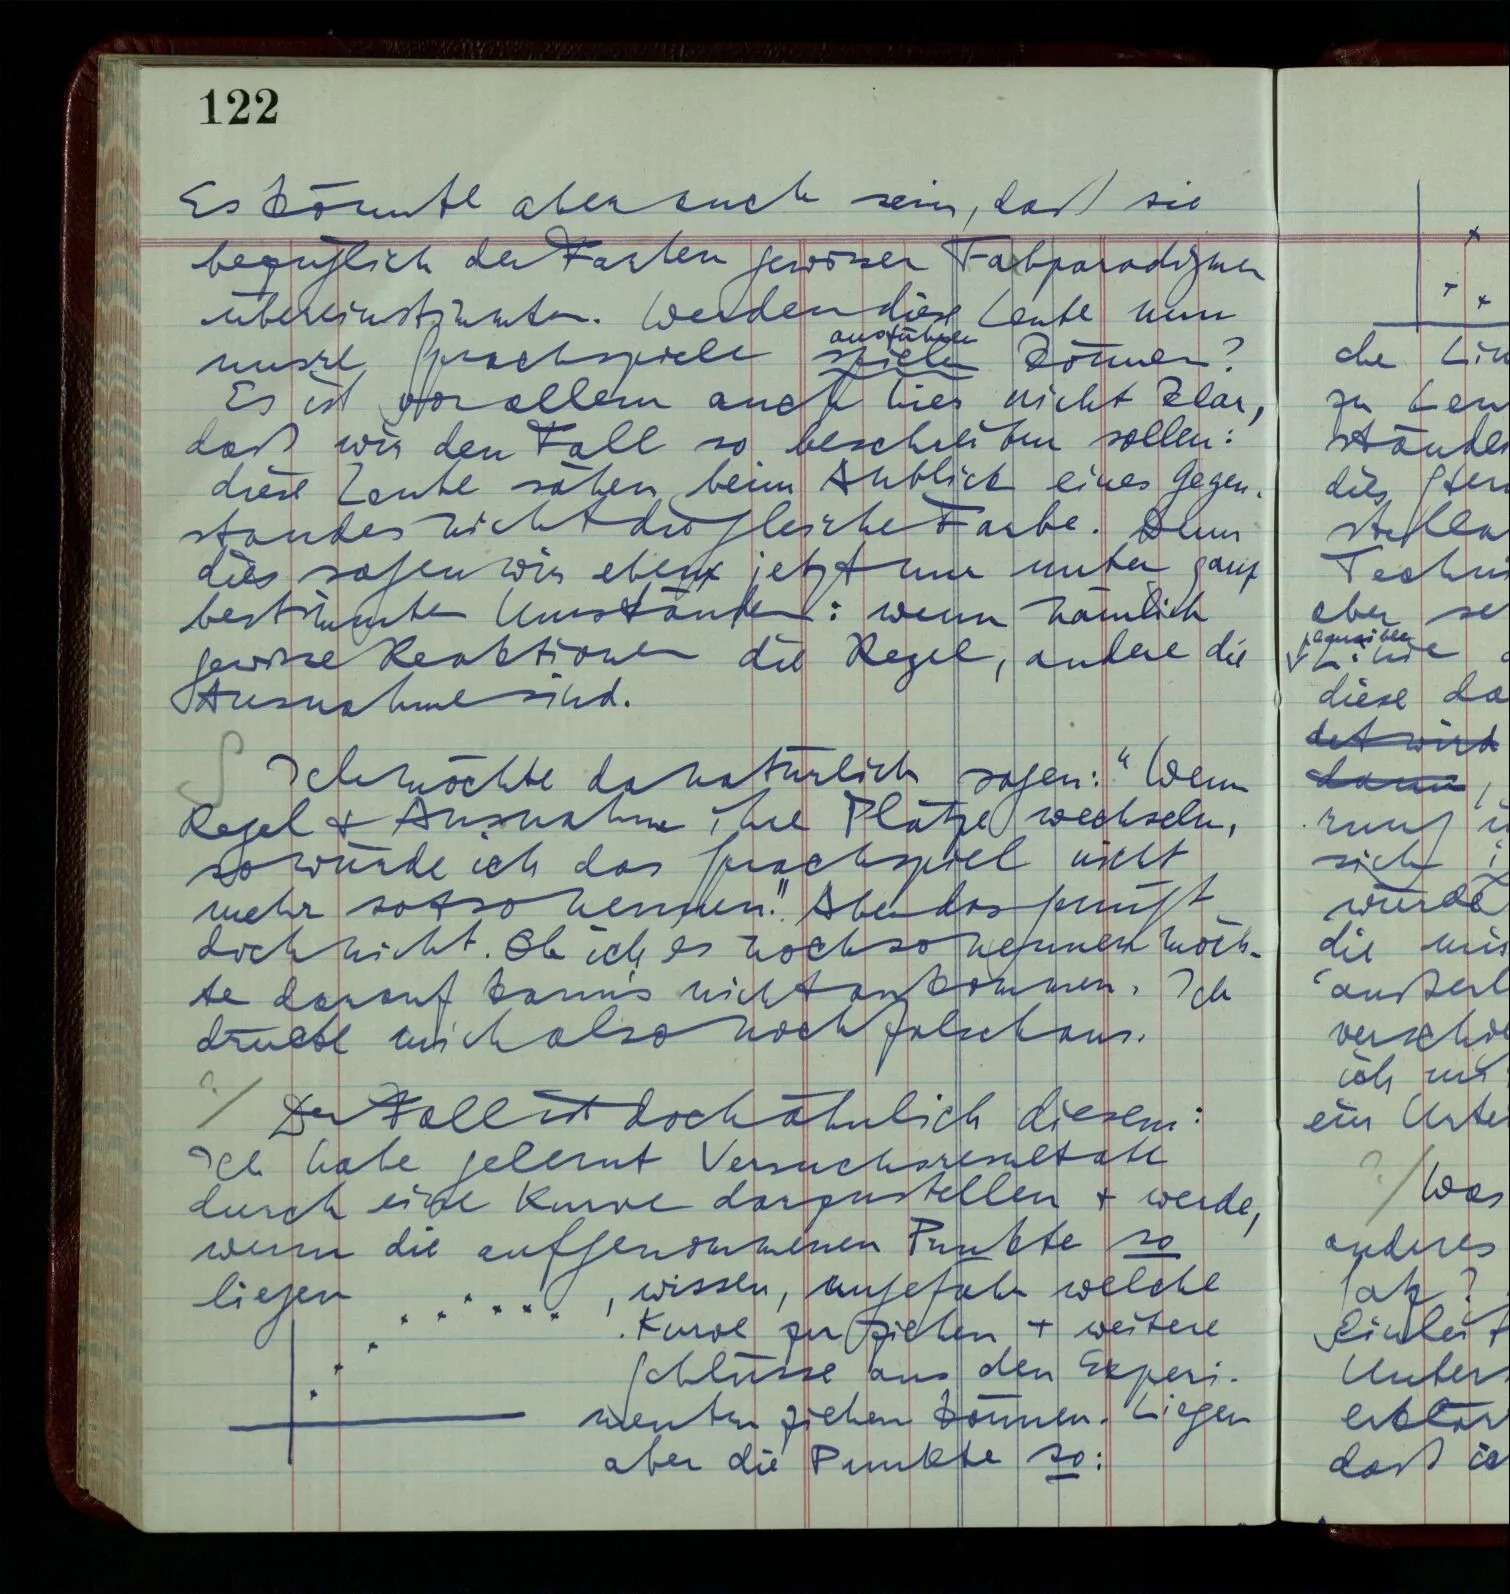 122
Es könnte aber auch sein, daß sie
bezüglich der Farben gewisser Fabparadigmen
übereinstimmten. Werden diese Leute nun
unsre Sprachspiele spielen ausführen können?
Es ist vor allem auch hier nicht klar,
daß wir den Fall so beschreiben sollen:
diese Leute sähen beim Anblick eines Gegen-
standes nicht die gleiche Farbe. Denn
dies sagen wir eben jetzt nur unter ganz
bestimmten Umständen: wenn nämlich
gewisse Reaktionen die Regel, andere die
Ausnahme sind.
S Ich möchte da natürlich sagen: "Wenn
Regel + Ausnahme ihre Plätze wechseln,
so würde ich das Sprachspiel nicht
mehr so + so nennen." Aber das genügt
doch nicht. Ob ich es noch so nennen möch-
te darauf kann's nicht ankommen. Ich
drücke mich also noch falsch aus.
?/ Der Fall ist doch ähnlich diesem:
Ich habe gelernt Versuchsresultate
durch eine Kurve darzustellen + werde,
wenn die aufgenommenen Punkte so
liegen , wissen, ungefähr welche
Kurve zu ziehen + weitere
Schlüsse aus den Experi-
menten ziehen können. Liegen
aber die Punkte so:
die
zu
dies
aber
plausiblen
diese
det wird
dann,
sich
würde
die
ich
ein
?/ Was
anderes
Satz?
daß